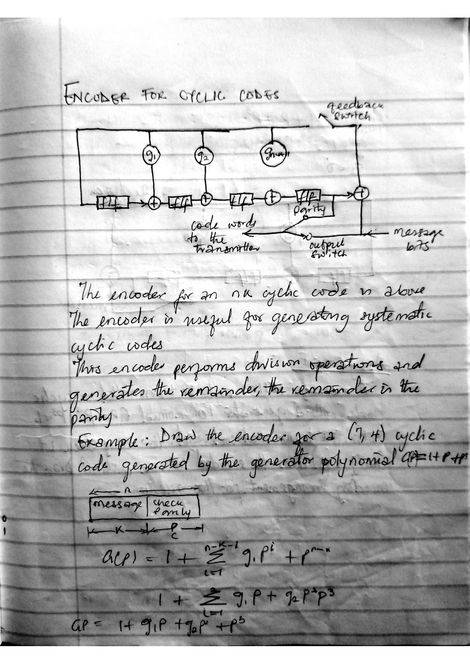 ENCODER FOR CYCLIC CODES
feedback
switch
g1 g2
f/f f/f f/f f/f
parity
code words
to the
transmitter
output
switch
message
bits
The encoder for an nk cyclic code is above
The encoder is useful for generating systematic
cyclic codes
This encoder performs division operations and
generates the remainder, the remainder is the
parity
Example: Draw the encoder for a (7,4) cyclic
code generated by the generator polynomial GP=1+P+P
n
message check
parity
K P
C
G(P) = 1 + Σ g_i P^i + P^{n-k}
n-k-1
i=1
1 + Σ g_1 P + g_2 P^2 P^3
i=1
GP = 1 + g_1 P + g_2 P^2 + P^3